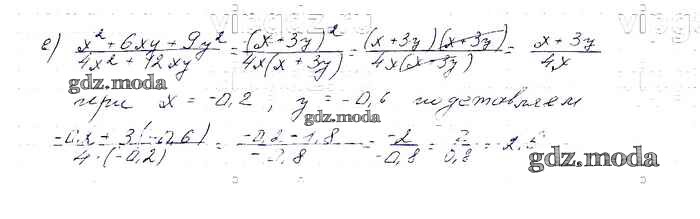 е) x² + 6xy + 9y² / 4x² + 12xy = (x + 3y)² / 4x(x + 3y) = (x + 3y)(x + 3y) / 4x(x + 3y) = x + 3y / 4x
gdz.moda
при x = -0,2 , y = -0,6 подставляем
gdz.moda
-0,2 + 3(-0,6) / 4·(-0,2) = -0,2 - 1,8 / -0,8 = -2 / -0,8 = 2 / 0,8 = 2,5
gdz.moda